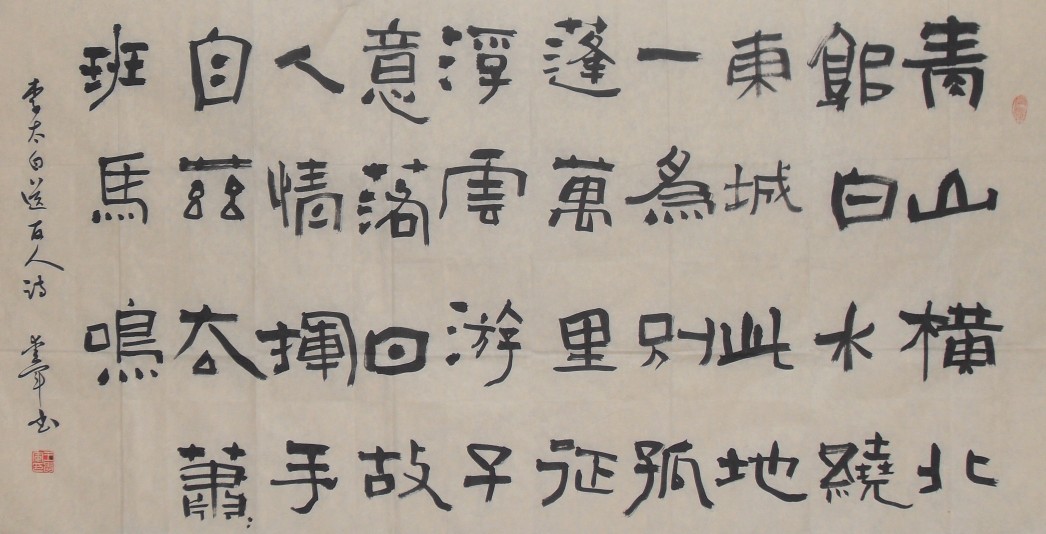 青山橫北
郭白水繞
東城此地
一為別孤
蓬萬里征
浮雲游子
意落日故
人情揮手
自茲去蕭
班馬鳴
李太白送友人诗 书